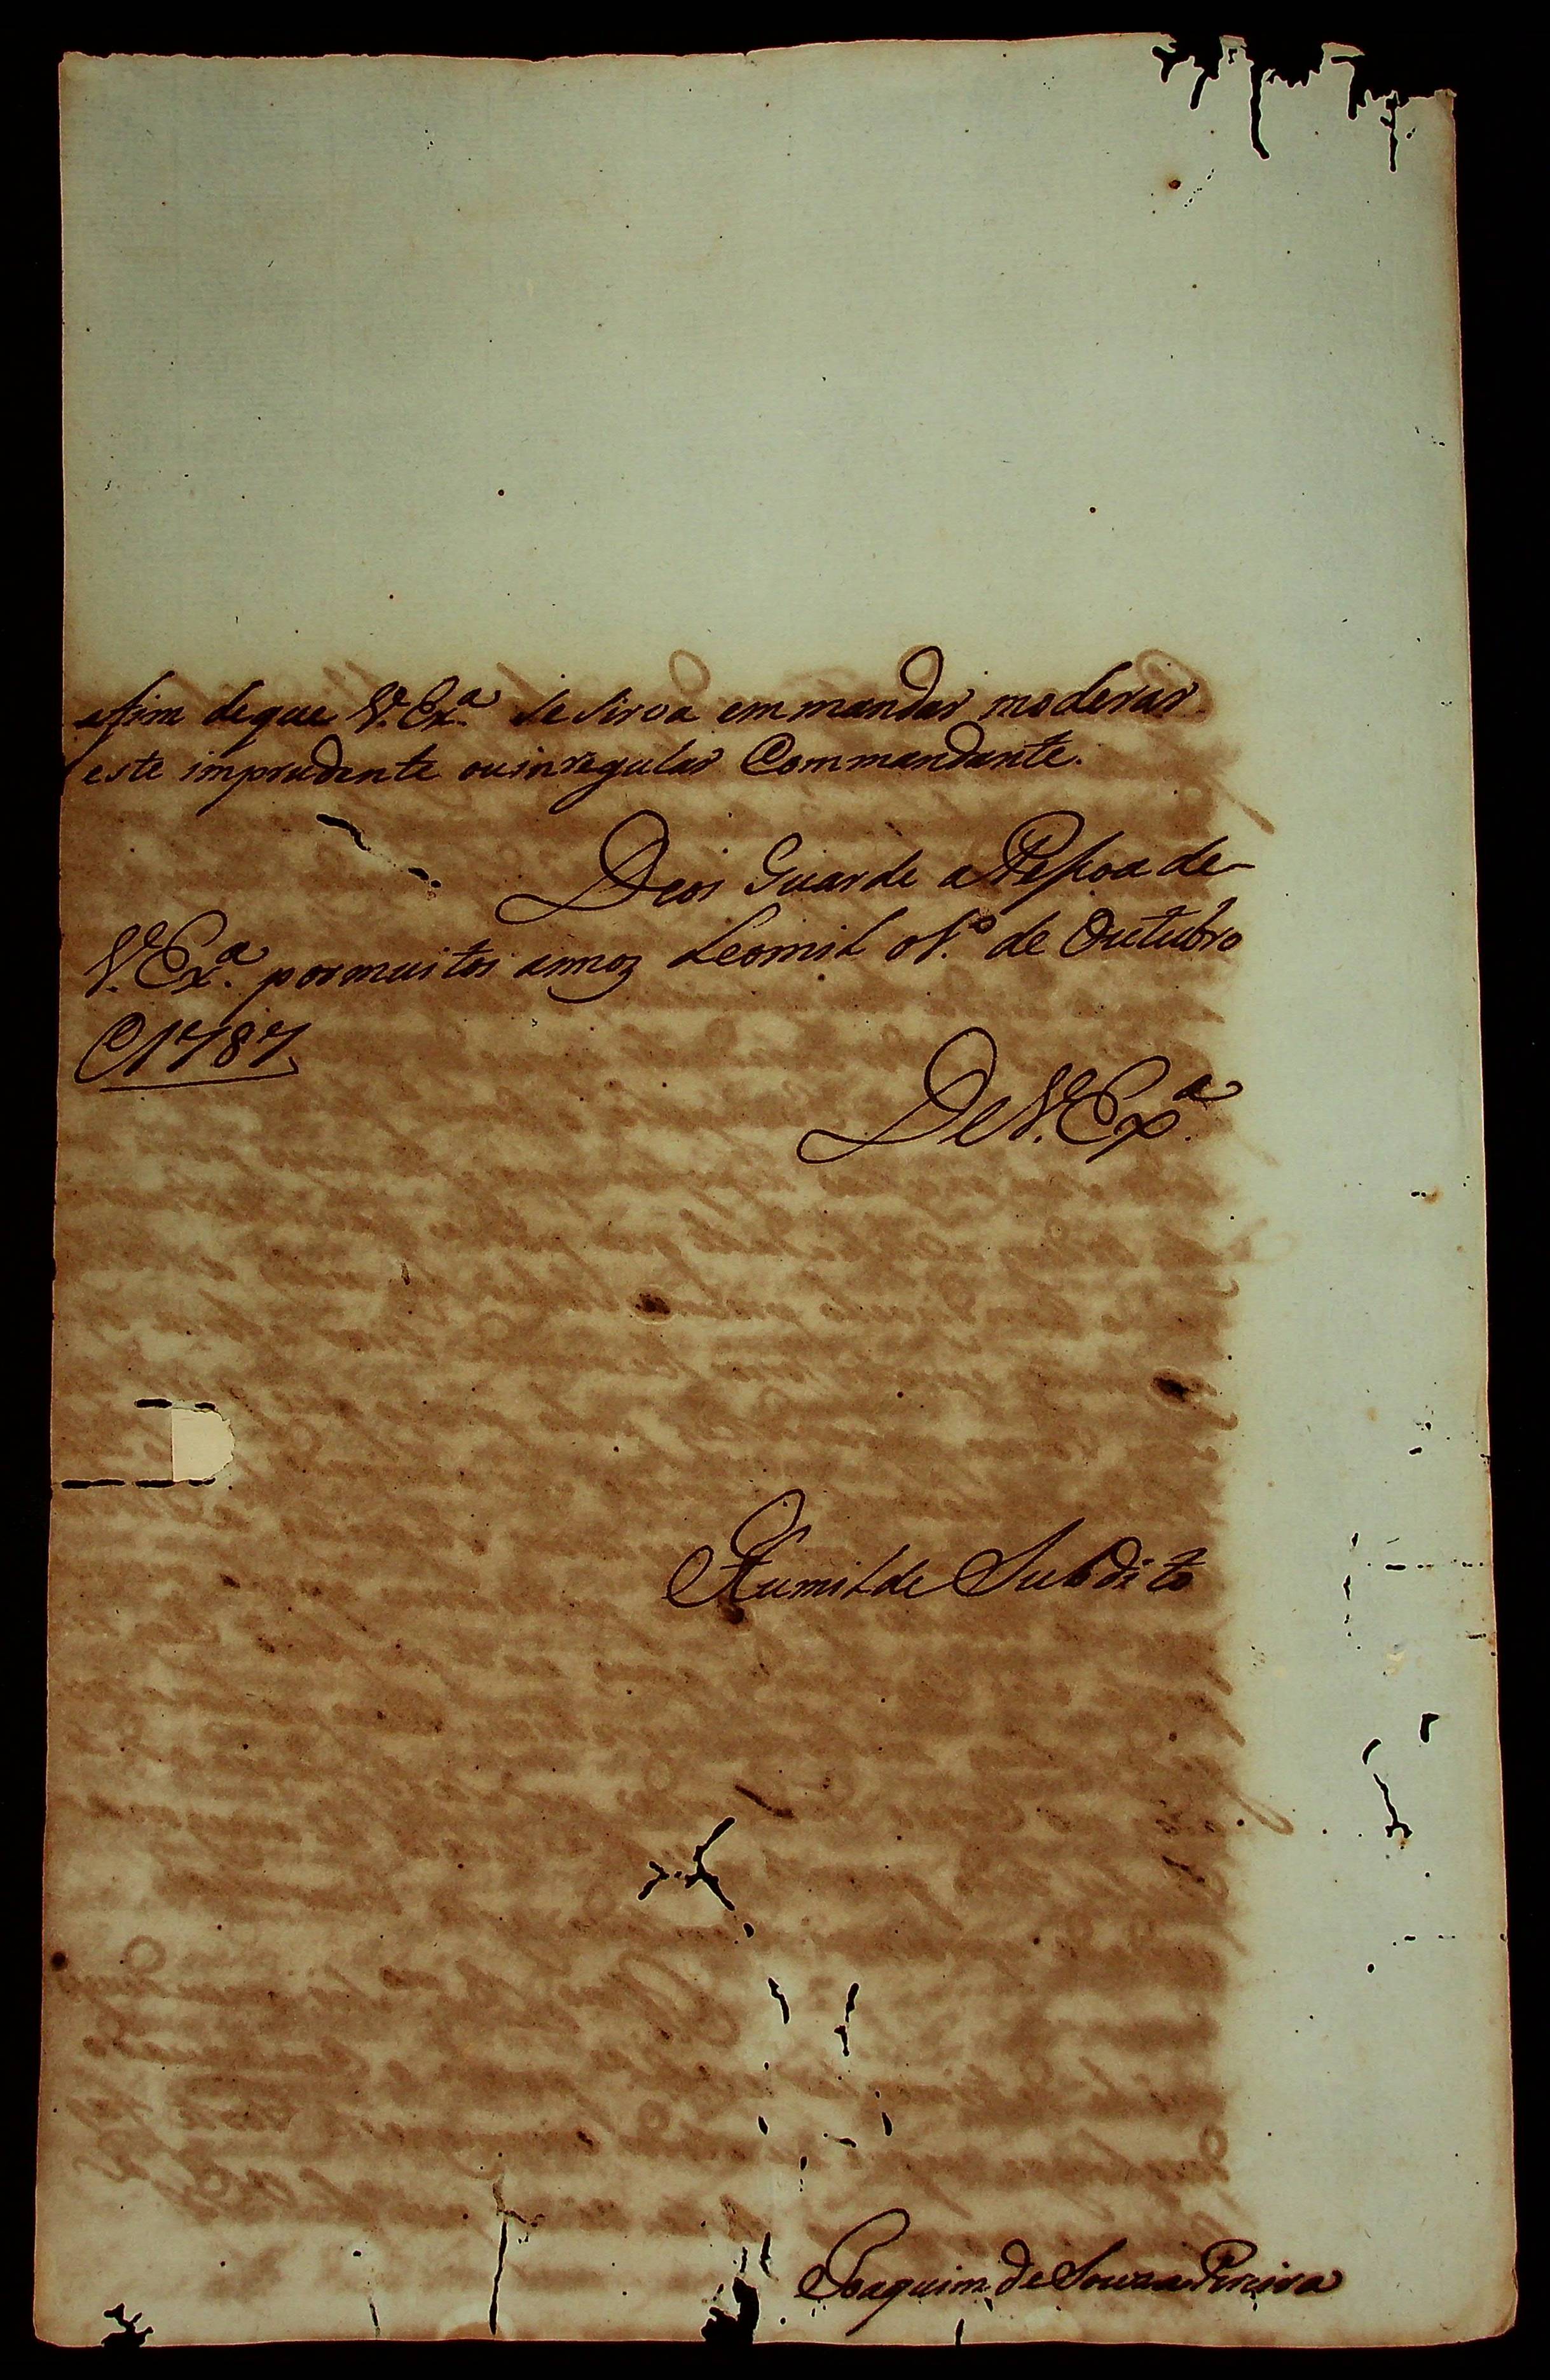 afim deque V. Ex.ª se sirva em mandar moderar
este imprudente ou inregular Commandante.
Deos Guarde a Pessoa de
V. Ex.ª por muitos annos Leomil de Outubro
1787
De V. Ex.ª
Humilde Subdito
Joaquim de Souza Pereira